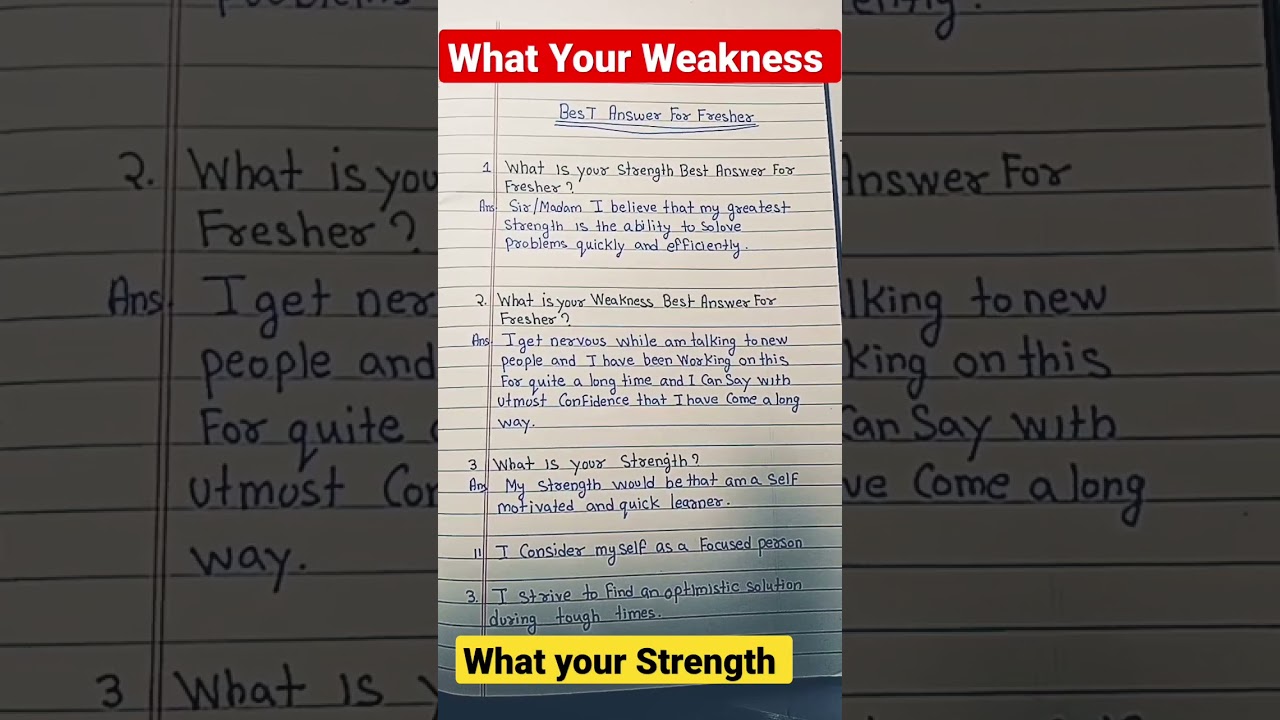 What Your Weakness
BesT Answer For Fresher
1 What Is your Strength Best Answer For
Fresher?
Ans. Sir/Madam I believe that my greatest
Strength is the ability to Solove
problems quickly and efficiently.
2. What is your Weakness Best Answer For
Fresher?
Ans. I get nervous while am talking to new
people and I have been Working on this
For quite a long time and I Can Say with
Utmost Confidence that I have Come a long
way.
3 What Is your Strength?
Ans My Strength would be that am a Self
motivated and quick learner.
11 I Consider myself as a Focused person
3. I Strive to Find an optimistic solution
during tough times.
What your Strength